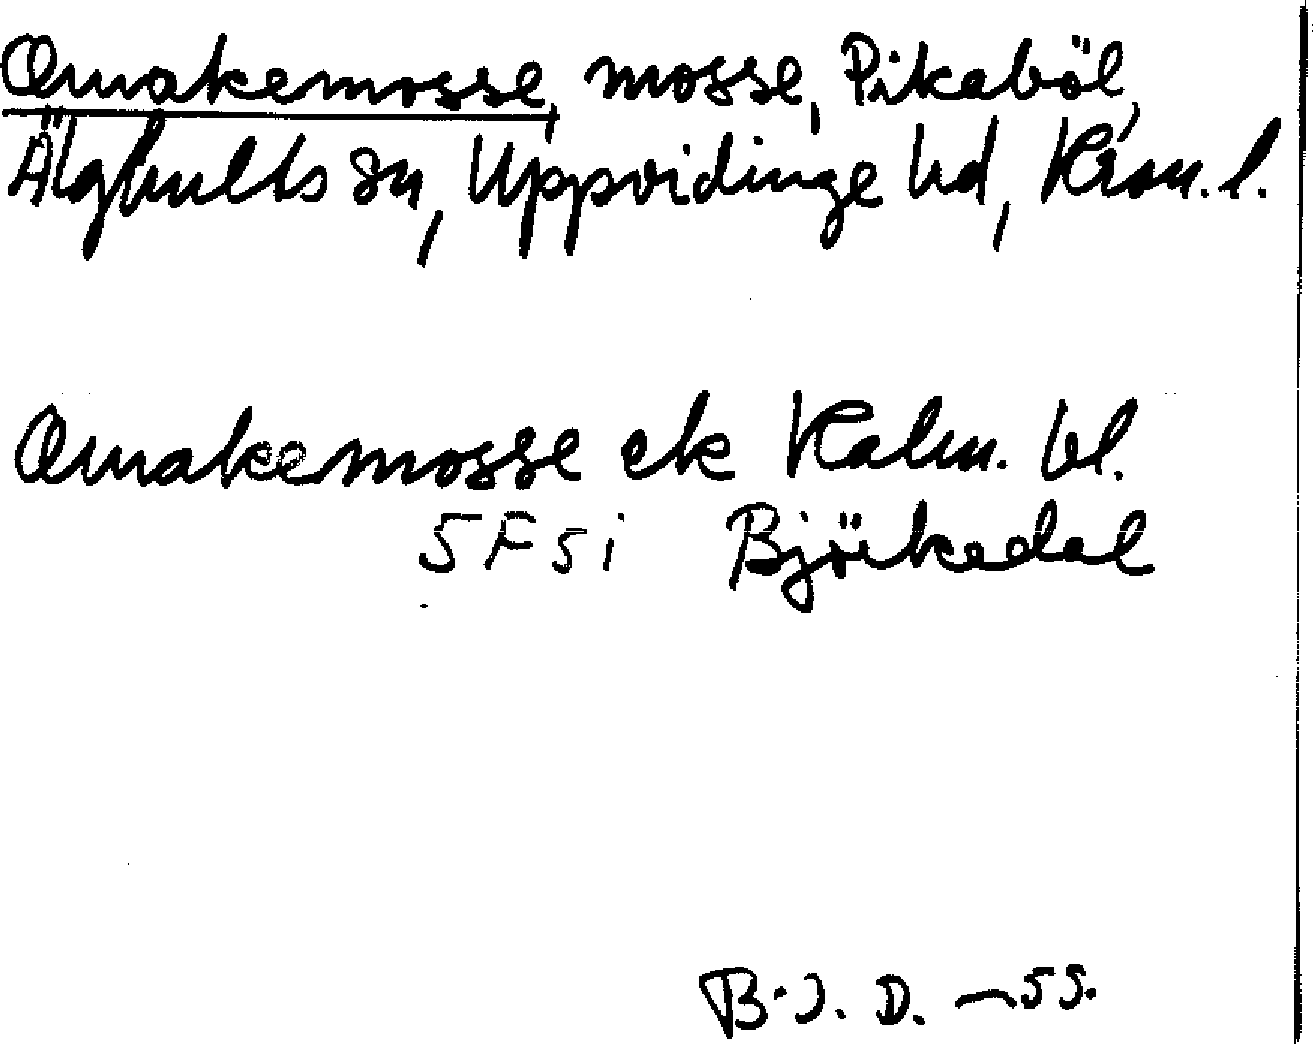 Omakemosse, mosse, Pikaböl,
Älghults sn, Uppvidinge hd, Kron. l.
Omakemosse ek Kalm. bl.
5F5i Björkedal
B.J.D. -55.